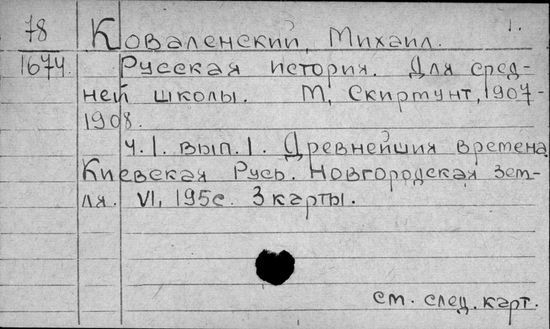 78 Коваленский, Михаил. 1.
1674. Русская история. Для сред-
ней школы. М, Скиртунт, 1907-
1908.
ч.1. вып.1. Древнейшия времена
Киевская Русь. Новгородская зем-
ля. VI, 195с. 3 карты.
см. след. карт.